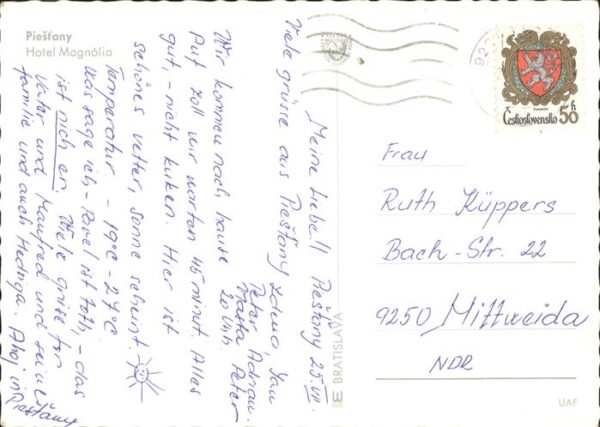 Piešťany
Hotel Magnólia
Meine Liebe!! Piešťany 25.VII.
Viele grüsse aus Piešťany Zdeno, Jan
Peter, Adrian.
Marta, Peter
Wir kommen nach hause 20 Uh.
Auf Zoll wir warten 45 minut. Alles
gut, - nicht kuken. Hier ist
schönes vetter, sonne scheint.
Temperatur - 19°C - 27°C.
Was sage ich, - Pavel ist toth, - das
ist nich er. Viele grüse for
Vater und Manfred und seine
familie und auch Hedviga. Ahoj in
Piešťany
E BRATISLAVA
Československo 50 h
Frau
Ruth Küppers
Bach-Str. 22
9250 Mittweida
NDR
UAF